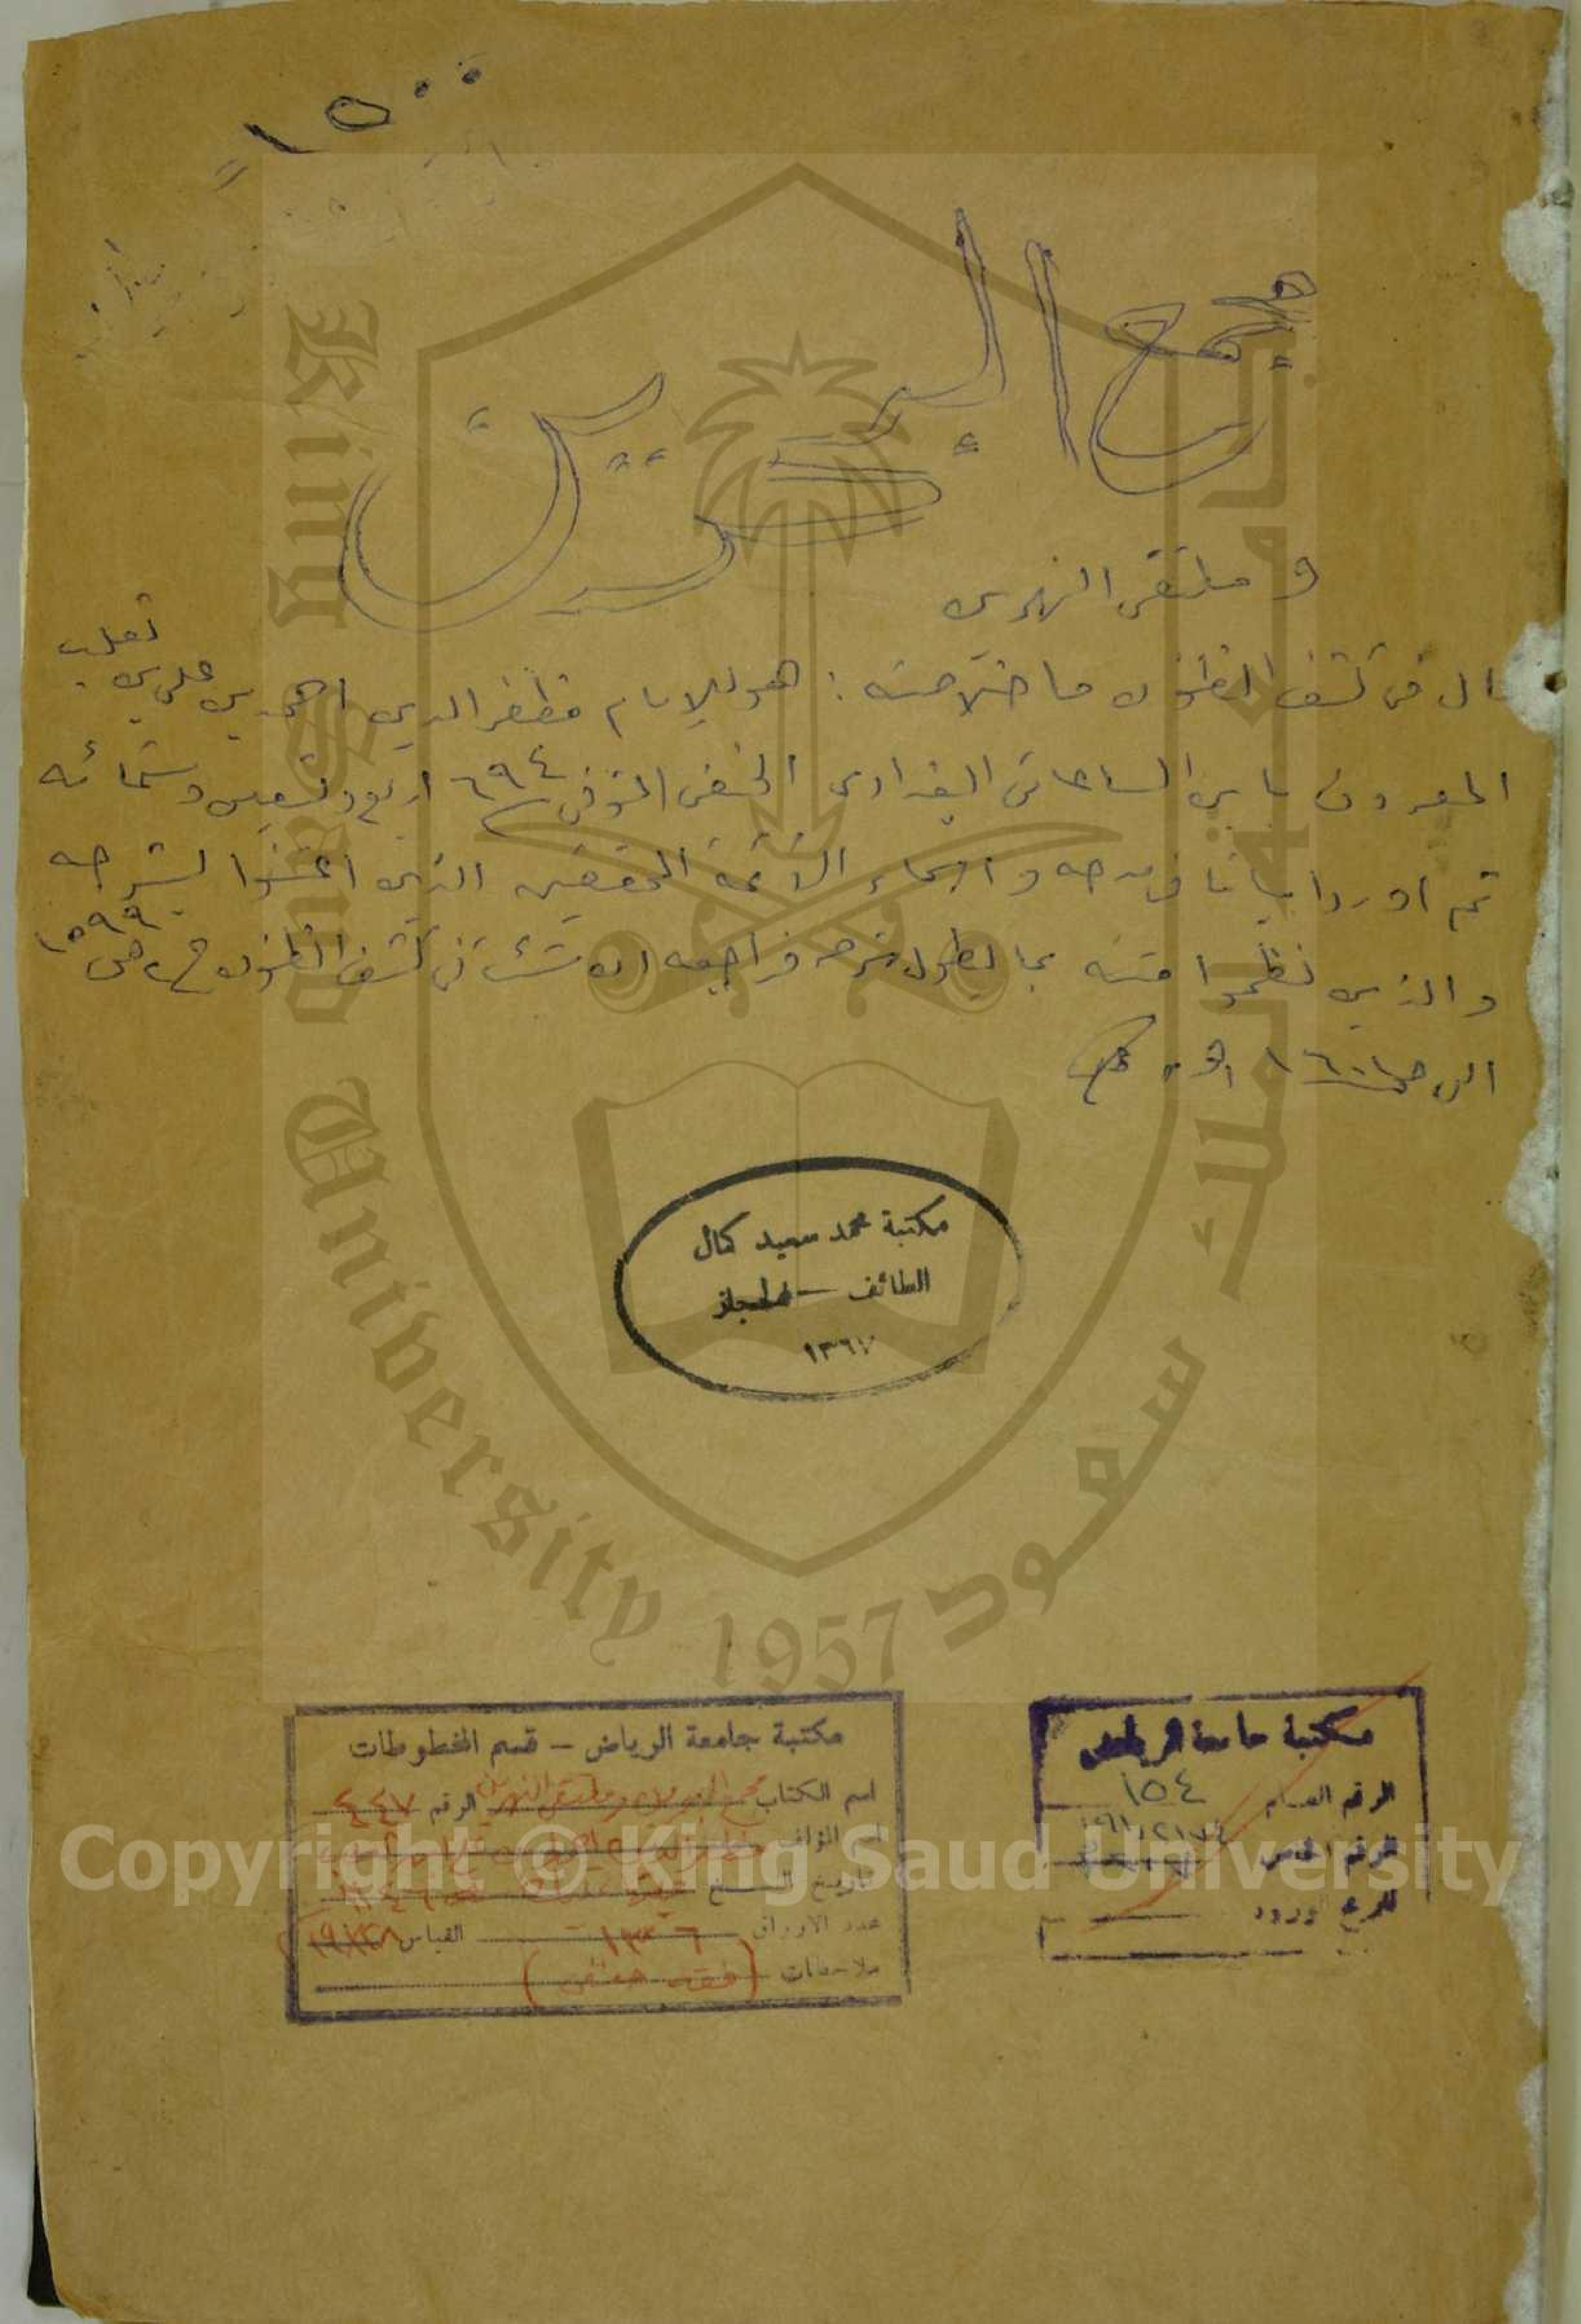 ١٥٠٠
مجمع البحرين
و ملتقى النهرين
قال في كشف الظنون ما خلاصته : هو للإمام مظفر الدين احمد بن علي بن ثعلب
المعروف بابن الساعاتي البغدادي الحنفي المتوفى ٦٩٤ اربع وتسعين وستمائه
ثم اورد ابياتا في مدحه واسماء الأئمة المحققين الذين اعتنوا بشرحه
والذين نظموا متنه بما يطول شرحه فراجعه ان شئت في كشف الظنون ج٢ ص ١٥٩٩
الى ص ١٦٠١
مكتبة محمد سعيد كمال
الطائف –
١٣٦٧
مكتبة جامعة الرياض – قسم المخطوطات
اسم الكتاب مجمع البحرين وملتقى النهرين الرقم ٤٤٧
اسم المؤلف
تاريخ النسخ
عدد الأوراق ١٣٠٦ القياس
ملاحظات (فقه حنفي)
مكتبة جامعة الرياض
الرقم العام ١٥٤
الرقم الخاص
ورود
King Saud University 1957
جامعة الملك سعود
Copyright © King Saud University